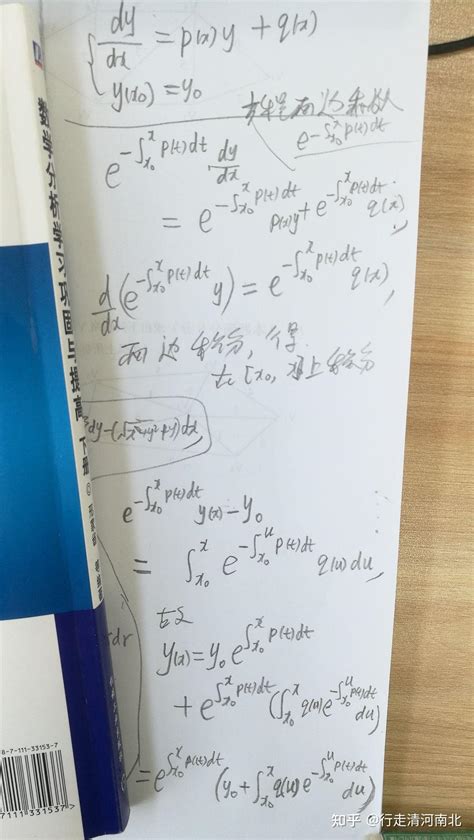 dy/dx = p(x)y + q(x)
y(x₀) = y₀
方程两边乘以
e^{-∫_{x₀}^{x} p(t)dt}
e^{-∫_{x₀}^{x} p(t)dt} dy/dx
= e^{-∫_{x₀}^{x} p(t)dt} p(x)y + e^{-∫_{x₀}^{x} p(t)dt} q(x),
d/dx (e^{-∫_{x₀}^{x} p(t)dt} y) = e^{-∫_{x₀}^{x} p(t)dt} q(x),
两边积分，得
在[x₀, x]上积分
dy-(√x²+y²+y)dx,
e^{-∫_{x₀}^{x} p(t)dt} y(x)-y₀
= ∫_{x₀}^{x} e^{-∫_{x₀}^{u} p(t)dt} q(u)du,
y(x)=y₀ e^{∫_{x₀}^{x} p(t)dt}
+ e^{∫_{x₀}^{x} p(t)dt} (∫_{x₀}^{x} q(u)e^{-∫_{x₀}^{u} p(t)dt} du)
= e^{∫_{x₀}^{x} p(t)dt} (y₀+∫_{x₀}^{x} q(u)e^{-∫_{x₀}^{u} p(t)dt} du)
dr
数学分析学习巩固与提高 下册
8-7-111-33153-7
7111 331537>
知乎 @行走清河南北